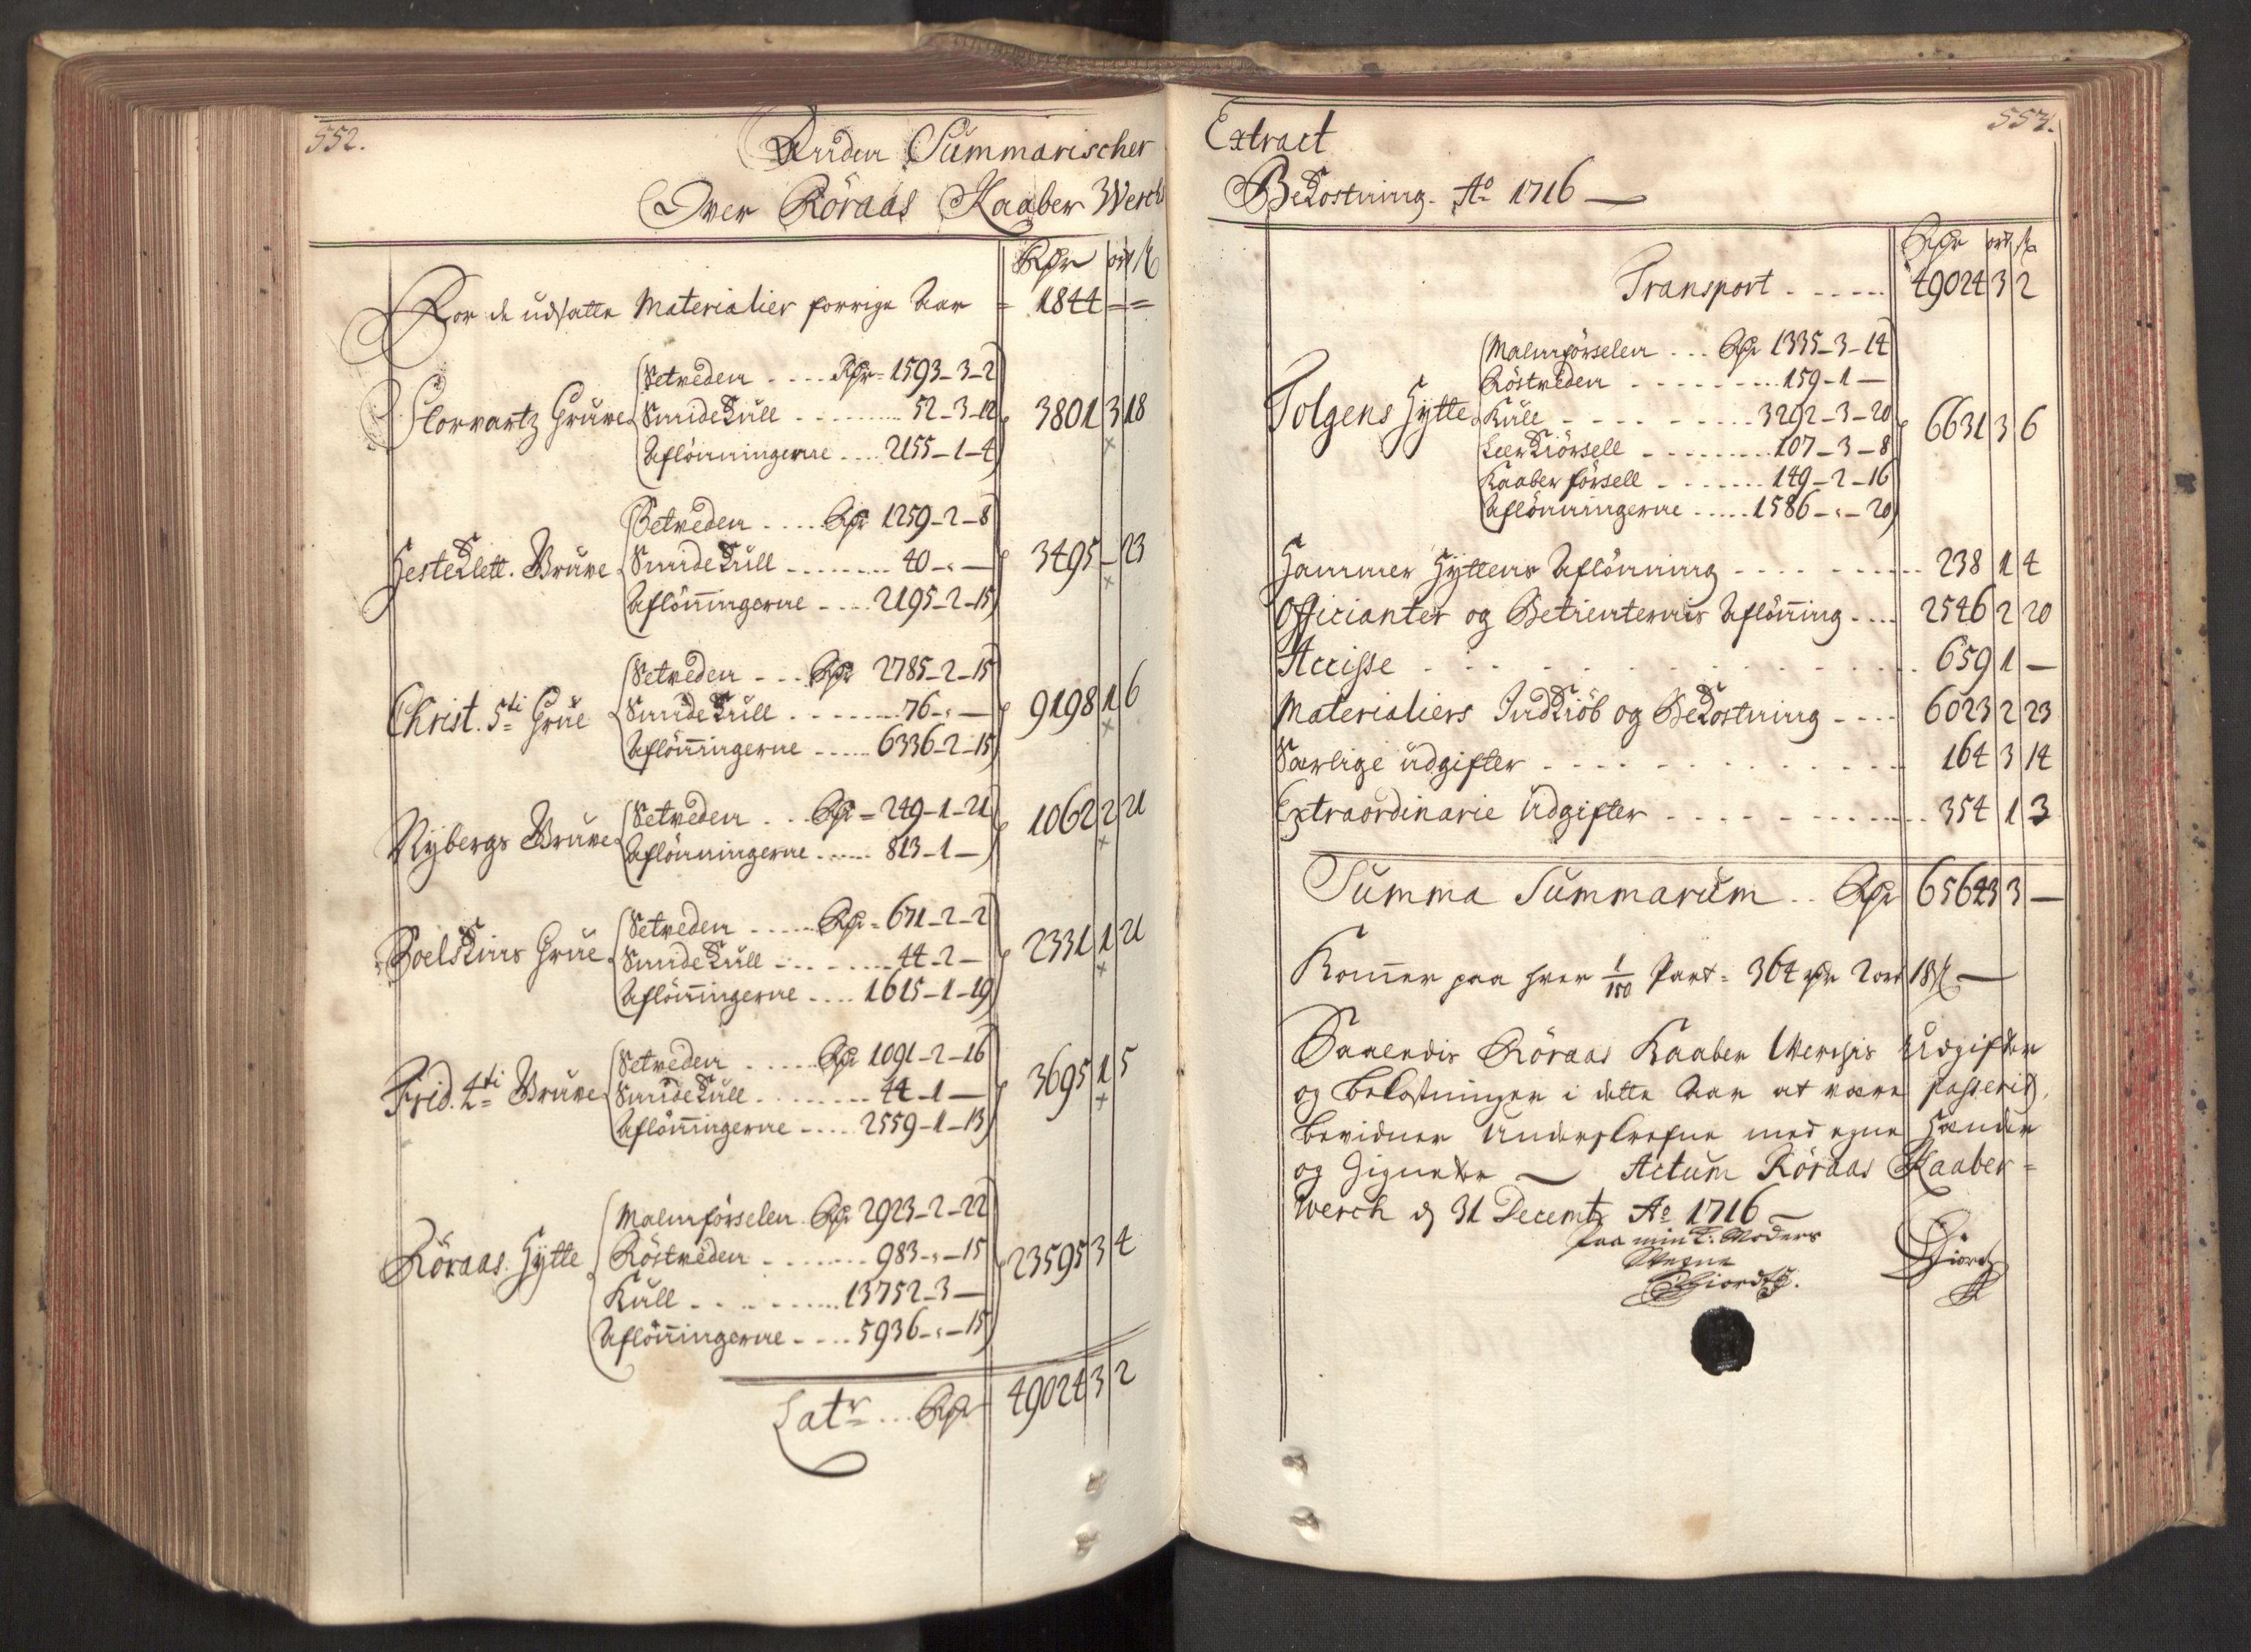 552.
Anden Summarischer
Over Röraas Kaaber Werchs
Rdr ort ß
For de udsatte Materialier forrige Aar = 1844 - =
Storvartz Gruve
Setveden .... Rdr = 1593-3-2
Smidekull ......... 52-3-12
Aflönningerne .... 2155-1-4
3801 3 18
Hesteklett. Gruve
Setveden ..... Rdr 1259-2-8
Smidekull ........ 40-"-
Aflönningerne .... 2195-2-15
3495 - 23
Christ. 5ti Grue
Setveden ... Rdr 2785-2-15
Smidekull ....... 76-"-
Aflönningerne ..... 6336-2-15
9198 1 6
Nybergs Gruve
Setveden ... Rdr = 249-1-21
Aflönningerne ...... 813-1-
1062 2 21
Solskins Grue
Setveden ..... Rdr = 671-2-2
Smidekull ........ 44-2-
Aflönningerne .... 1615-1-19
2331 1 21
Frid. 4ti Gruve
Setveden ..... Rdr 1091-2-16
Smidekull ........ 44-1-
Aflönningerne ..... 2559-1-13
3695 1 5
Röraas Hytte
Malmförselen Rdr 2923-2-22
Röstveden ........ 983-"-15
Kull ......... 13752-3-
Aflönningerne ..... 5936-"-15
23595 3 4
Latr ... Rdr 49024 3 2
553.
Extract
Bekostning. Ao 1716 —
Rdr ort ß
Transport ..... 49024 3 2
Tolgens Hytte
Malmförselen ... Rdr 1335-3-14
Röstveden ......... 159-1-
Kull ......... 3292-3-20
Leerkiörsell ......... 107-3-8
Kaaber försell ....... 149-2-16
Aflönningerne ..... 1586-"-20
6631 3 6
Hammer Hyttens Aflönning ......... 238 1 4
Officianter og Betienternis Aflöning .... 2546 2 20
Accisse ............... 659 1 —
Materialiers Indkiöb og Bekostning .... 6023 2 23
Særlige udgifter ............ 164 3 14
Extraordinarie Udgifter ........... 354 1 3
Summa Summarum .. Rdr 65643 3 —
Komer paa hver 1/180 Part = 364 rdr 2 ort 18 ß —
Saaledis Röraas Kaaber Werchis Udgifter
og Bekostninger i dette Aar at være passerit,
bevidner Underskrefne med egne Hænder
og Signeter — Actum Röraas Kaaber=
werch d 31 Decemb Ao 1716 —
paa min S: Moders
Vegne